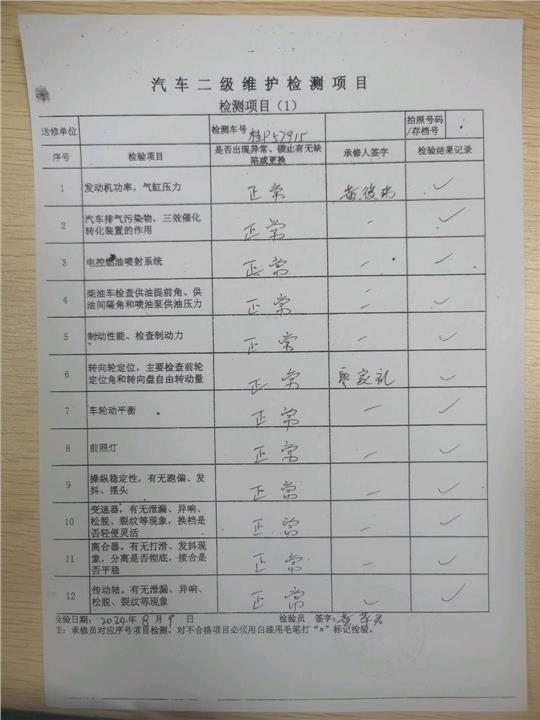 汽车二级维护检测项目
检测项目（1）
送修单位 检测车号 桂P57915 拍照号码/存档号
序号 检验项目 是否出现异常、锁止有无缺陷或更换 承修人签字 检验结果记录
1 发动机功率，气缸压力 正常 ✓
2 汽车排气污染物，三效催化转化装置的作用 正常 ✓
3 电控燃油喷射系统 正常 ✓
4 柴油车检查供油提前角、供油间隔角和喷油泵供油压力 正常 ✓
5 制动性能、检查制动力 正常 ✓
6 转向轮定位，主要检查前轮定位角和转向盘自由转动量 正常 ✓
7 车轮动平衡 正常 ✓
8 前照灯 正常 ✓
9 操纵稳定性，有无跑偏、发抖、摆头 正常 ✓
10 变速器。有无泄漏、异响、松脱、裂纹等现象，换档是否轻便灵活 正常 ✓
11 离合器。有无打滑、发抖现象，分离是否彻底，接合是否平稳 正常 ✓
12 传动轴。有无泄漏、异响、松脱、裂纹等现象 正常 ✓
验日期：2024年8月9日 检验员 签字：
主：承修员对应序号项目检测，对不合格项目必须用白漆用毛笔打“×”标记检验。